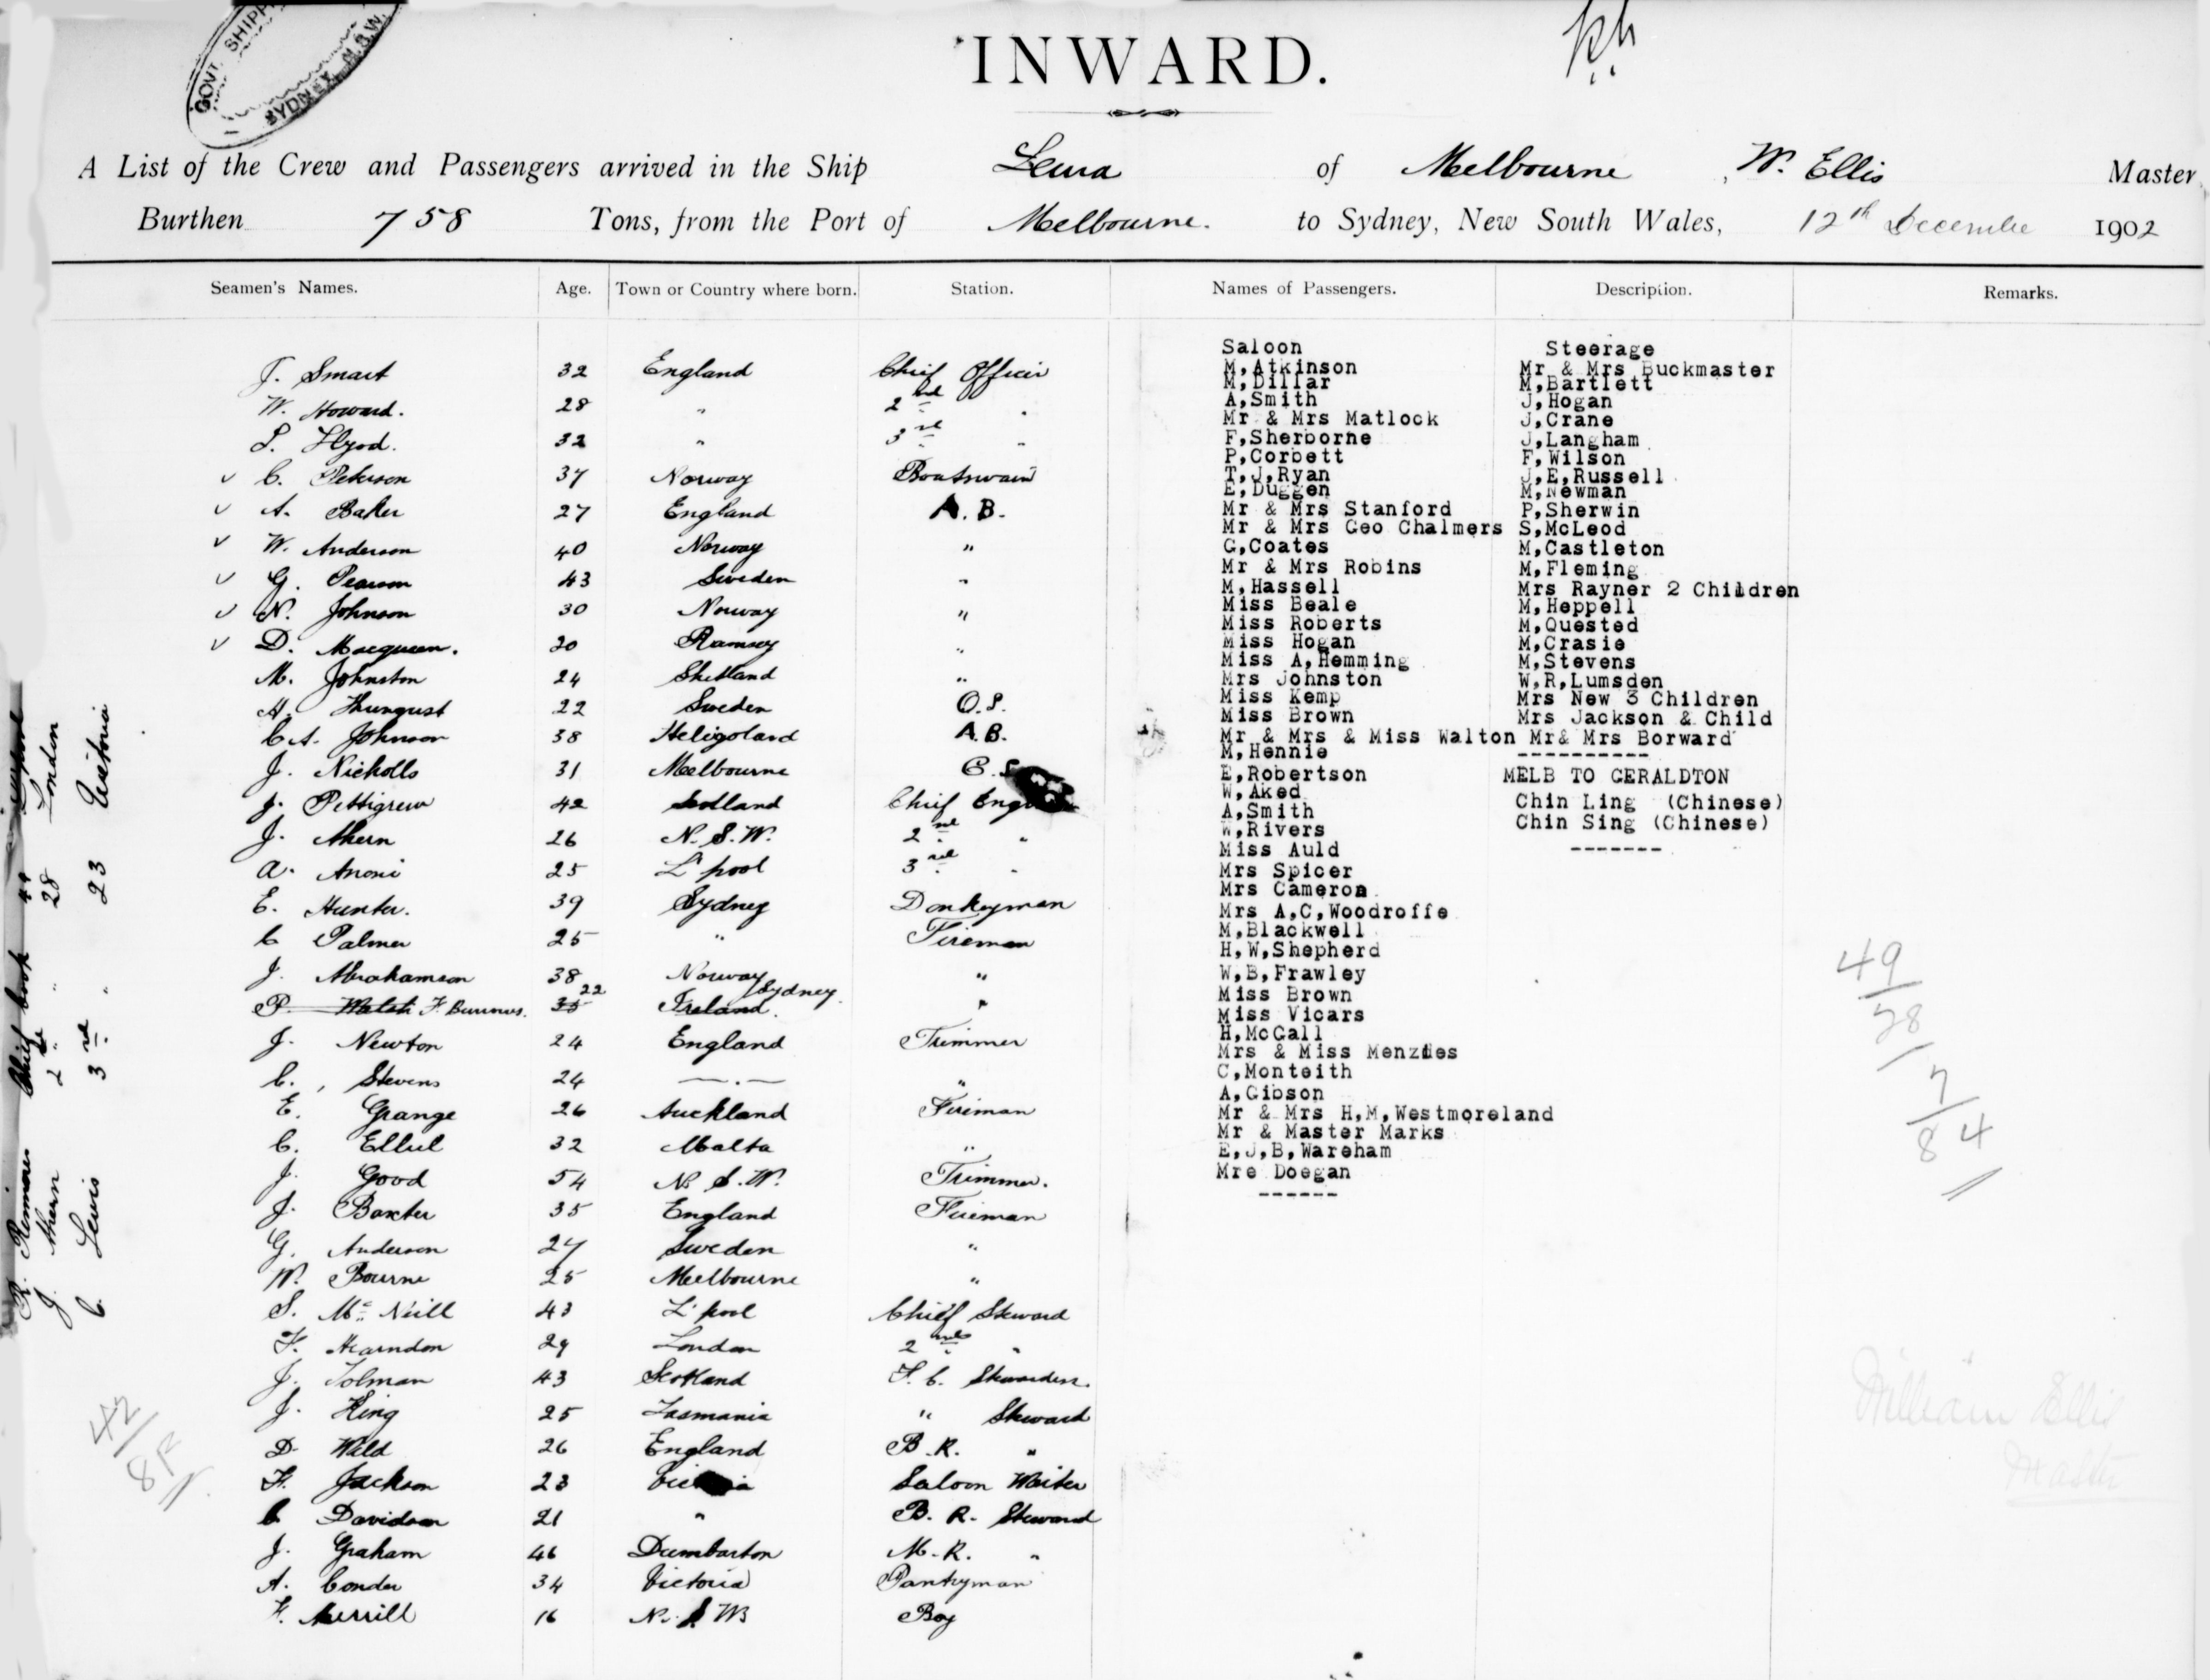 GOVT. SHIPP
SYDNEY N.S.W.
INWARD.
A List of the Crew and Passengers arrived in the Ship Leura of Melbourne, W. Ellis Master
Burthen 758 Tons, from the Port of Melbourne. to Sydney, New South Wales, 12th December 1902
Seamen's Names. Age. Town or Country where born. Station.
J. Smart 32 England Chief Officer
W. Howard. 28 " 2nd "
32 " 3rd "
C. Peterson 37 Norway Boatswain
A. Baker 27 England A.B.
W. Anderson 40 Norway "
G. Pearson 43 Sweden "
N. Johnson 30 Norway "
D. Macqueen. 20 Ramsey "
M. Johnston 24 Shetland "
22 Sweden O.S.
C.A. Johnson 38 Heligoland A.B.
J. Nicholls 31 Melbourne
J. Pettigrew 42 Scotland Chief
J. Ahern 26 N.S.W. 2nd "
A. Anoni 25 L'pool 3rd "
E. Hunter. 39 Sydney Donkeyman
C Palmer 25 " Fireman
J. Abrahamson 38 Norway "
P. Walsh F. Burrows. 35 22 Ireland. Sydney. "
J. Newton 24 England Trimmer
C. Stevens 24 — . — "
E. Grange 26 Auckland Fireman
C. Ellul 32 Malta "
J. Good 54 N.S.W. Trimmer.
J. Baxter 35 England Fireman
G. Anderson 27 Sweden "
W. Bourne 25 Melbourne "
S. McNeill 43 L'pool Chief Steward
F. Hearndon 29 London 2nd "
J. Tolman 43 Scotland F.C. Stewardess.
J. King 25 Tasmania " Steward
D. Wild 26 England B.R. "
F. Jackson 23 Victoria Saloon Waiter
C Davidson 21 " B.R. Steward
J. Graham 46 Dumbarton M.R. "
A. Conder 34 Victoria Pantryman
F. Merrill 16 N.S.W. Boy
Chief Cook 44
J. Ahern 2nd " 28 London
C. Lewis 3rd " 23 Victoria
42
Names of Passengers. Description. Remarks.
Saloon
M,Atkinson
M,Dillar
A,Smith
Mr & Mrs Matlock
F,Sherborne
P,Corbett
T,J,Ryan
E,Duggen
Mr & Mrs Stanford
Mr & Mrs Geo Chalmers
G,Coates
Mr & Mrs Robins
M,Hassell
Miss Beale
Miss Roberts
Miss Hogan
Miss A,Hemming
Mrs Johnston
Miss Kemp
Miss Brown
Mr & Mrs & Miss Walton
M,Hennie
E,Robertson
W,Aked
A,Smith
W,Rivers
Miss Auld
Mrs Spicer
Mrs Cameron
Mrs A,C,Woodroffe
M,Blackwell
H,W,Shepherd
W,B,Frawley
Miss Brown
Miss Vicars
H,McCall
Mrs & Miss Menzies
C,Monteith
A,Gibson
Mr & Mrs H,M,Westmoreland
Mr & Master Marks
E,J,B,Wareham
Mre Doegan
------
Steerage
Mr & Mrs Buckmaster
M,Bartlett
J,Hogan
J,Crane
J,Langham
F,Wilson
J,E,Russell
M,Newman
P,Sherwin
S,McLeod
M,Castleton
M,Fleming
Mrs Rayner 2 Children
M,Heppell
M,Quested
M,Crasie
M,Stevens
W,R,Lumsden
Mrs New 3 Children
Mrs Jackson & Child
Mr& Mrs Borward
----------
MELB TO GERALDTON
Chin Ling (Chinese)
Chin Sing (Chinese)
-------
49
28
7
84
William Ellis
Master